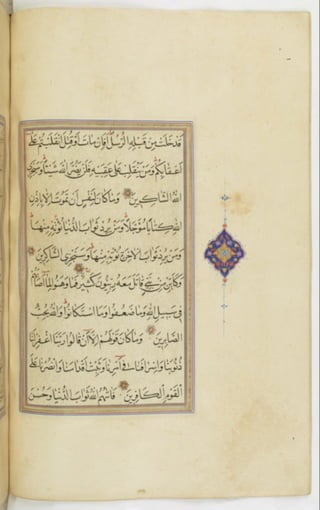 قَدْ خَلَتْ مِنْ قَبْلِهِ الرُّسُلُ أَفَإِنْ مَاتَ أَوْ قُتِلَ انْقَلَبْتُمْ عَلَى
أَعْقَابِكُمْ وَمَنْ يَنْقَلِبْ عَلَى عَقِبَيْهِ فَلَنْ يَضُرَّ اللهَ شَيْئًا وَسَيَجْزِي
اللهُ الشَّاكِرِينَ وَمَا كَانَ لِنَفْسٍ أَنْ تَمُوتَ إِلَّا بِإِذْنِ
اللهِ كِتَابًا مُؤَجَّلًا وَمَنْ يُرِدْ ثَوَابَ الدُّنْيَا نُؤْتِهِ مِنْهَا
وَمَنْ يُرِدْ ثَوَابَ الْآخِرَةِ نُؤْتِهِ مِنْهَا وَسَنَجْزِي الشَّاكِرِينَ
وَكَأَيِّنْ مِنْ نَبِيٍّ قَاتَلَ مَعَهُ رِبِّيُّونَ كَثِيرٌ فَمَا وَهَنُوا لِمَا أَصَابَهُمْ
فِي سَبِيلِ اللهِ وَمَا ضَعُفُوا وَمَا اسْتَكَانُوا وَاللهُ يُحِبُّ
الصَّابِرِينَ وَمَا كَانَ قَوْلَهُمْ إِلَّا أَنْ قَالُوا رَبَّنَا اغْفِرْ لَنَا
ذُنُوبَنَا وَإِسْرَافَنَا فِي أَمْرِنَا وَثَبِّتْ أَقْدَامَنَا وَانْصُرْنَا عَلَى
الْقَوْمِ الْكَافِرِينَ فَآتَاهُمُ اللهُ ثَوَابَ الدُّنْيَا وَحُسْنَ